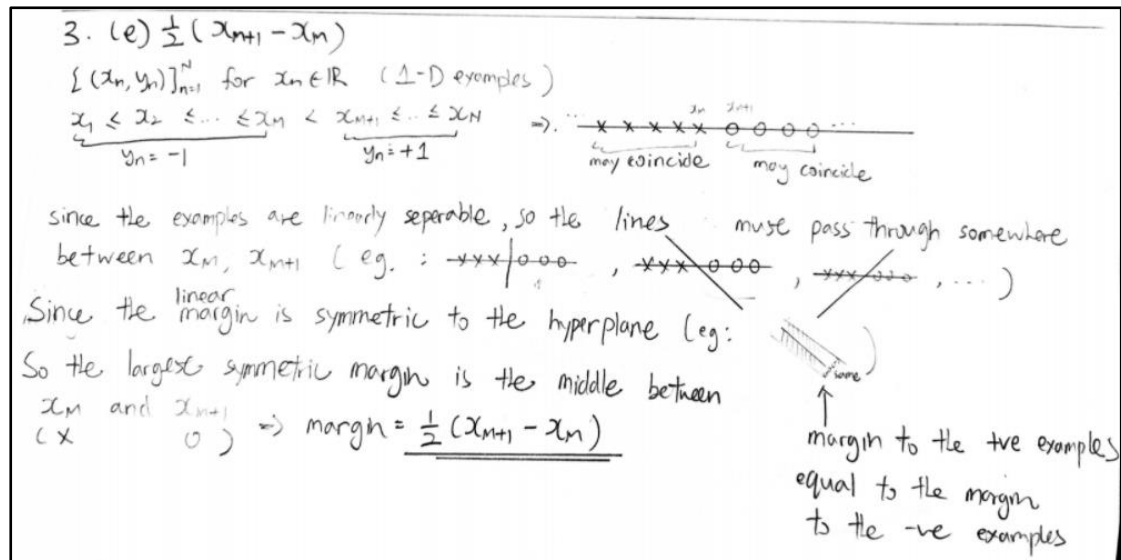 3. (e) ½ (x_{M+1} - x_M)
{(x_n, y_n)}_{n=1}^{N} for x_n ∈ ℝ (1-D examples)
x_1 ≤ x_2 ≤ ... ≤ x_M < x_{M+1} ≤ .. ≤ x_N ⇒. ... x x x x x o o o o ...
x_n x_{n+1}
y_n = -1 y_n = +1 may coincide may coincide
since the examples are linearly seperable, so the lines must pass through somewhere
between x_M, x_{M+1} (eg. : xxx|ooo , xxx\ooo , xxx/ooo , ....)
Since the linear margin is symmetric to the hyperplane (eg: same )
So the largest symmetric margin is the middle between
x_M and x_{M+1}
(x o) ⇒ margin = ½ (x_{M+1} - x_M)
↑
margin to the +ve examples
equal to the margin
to the -ve examples